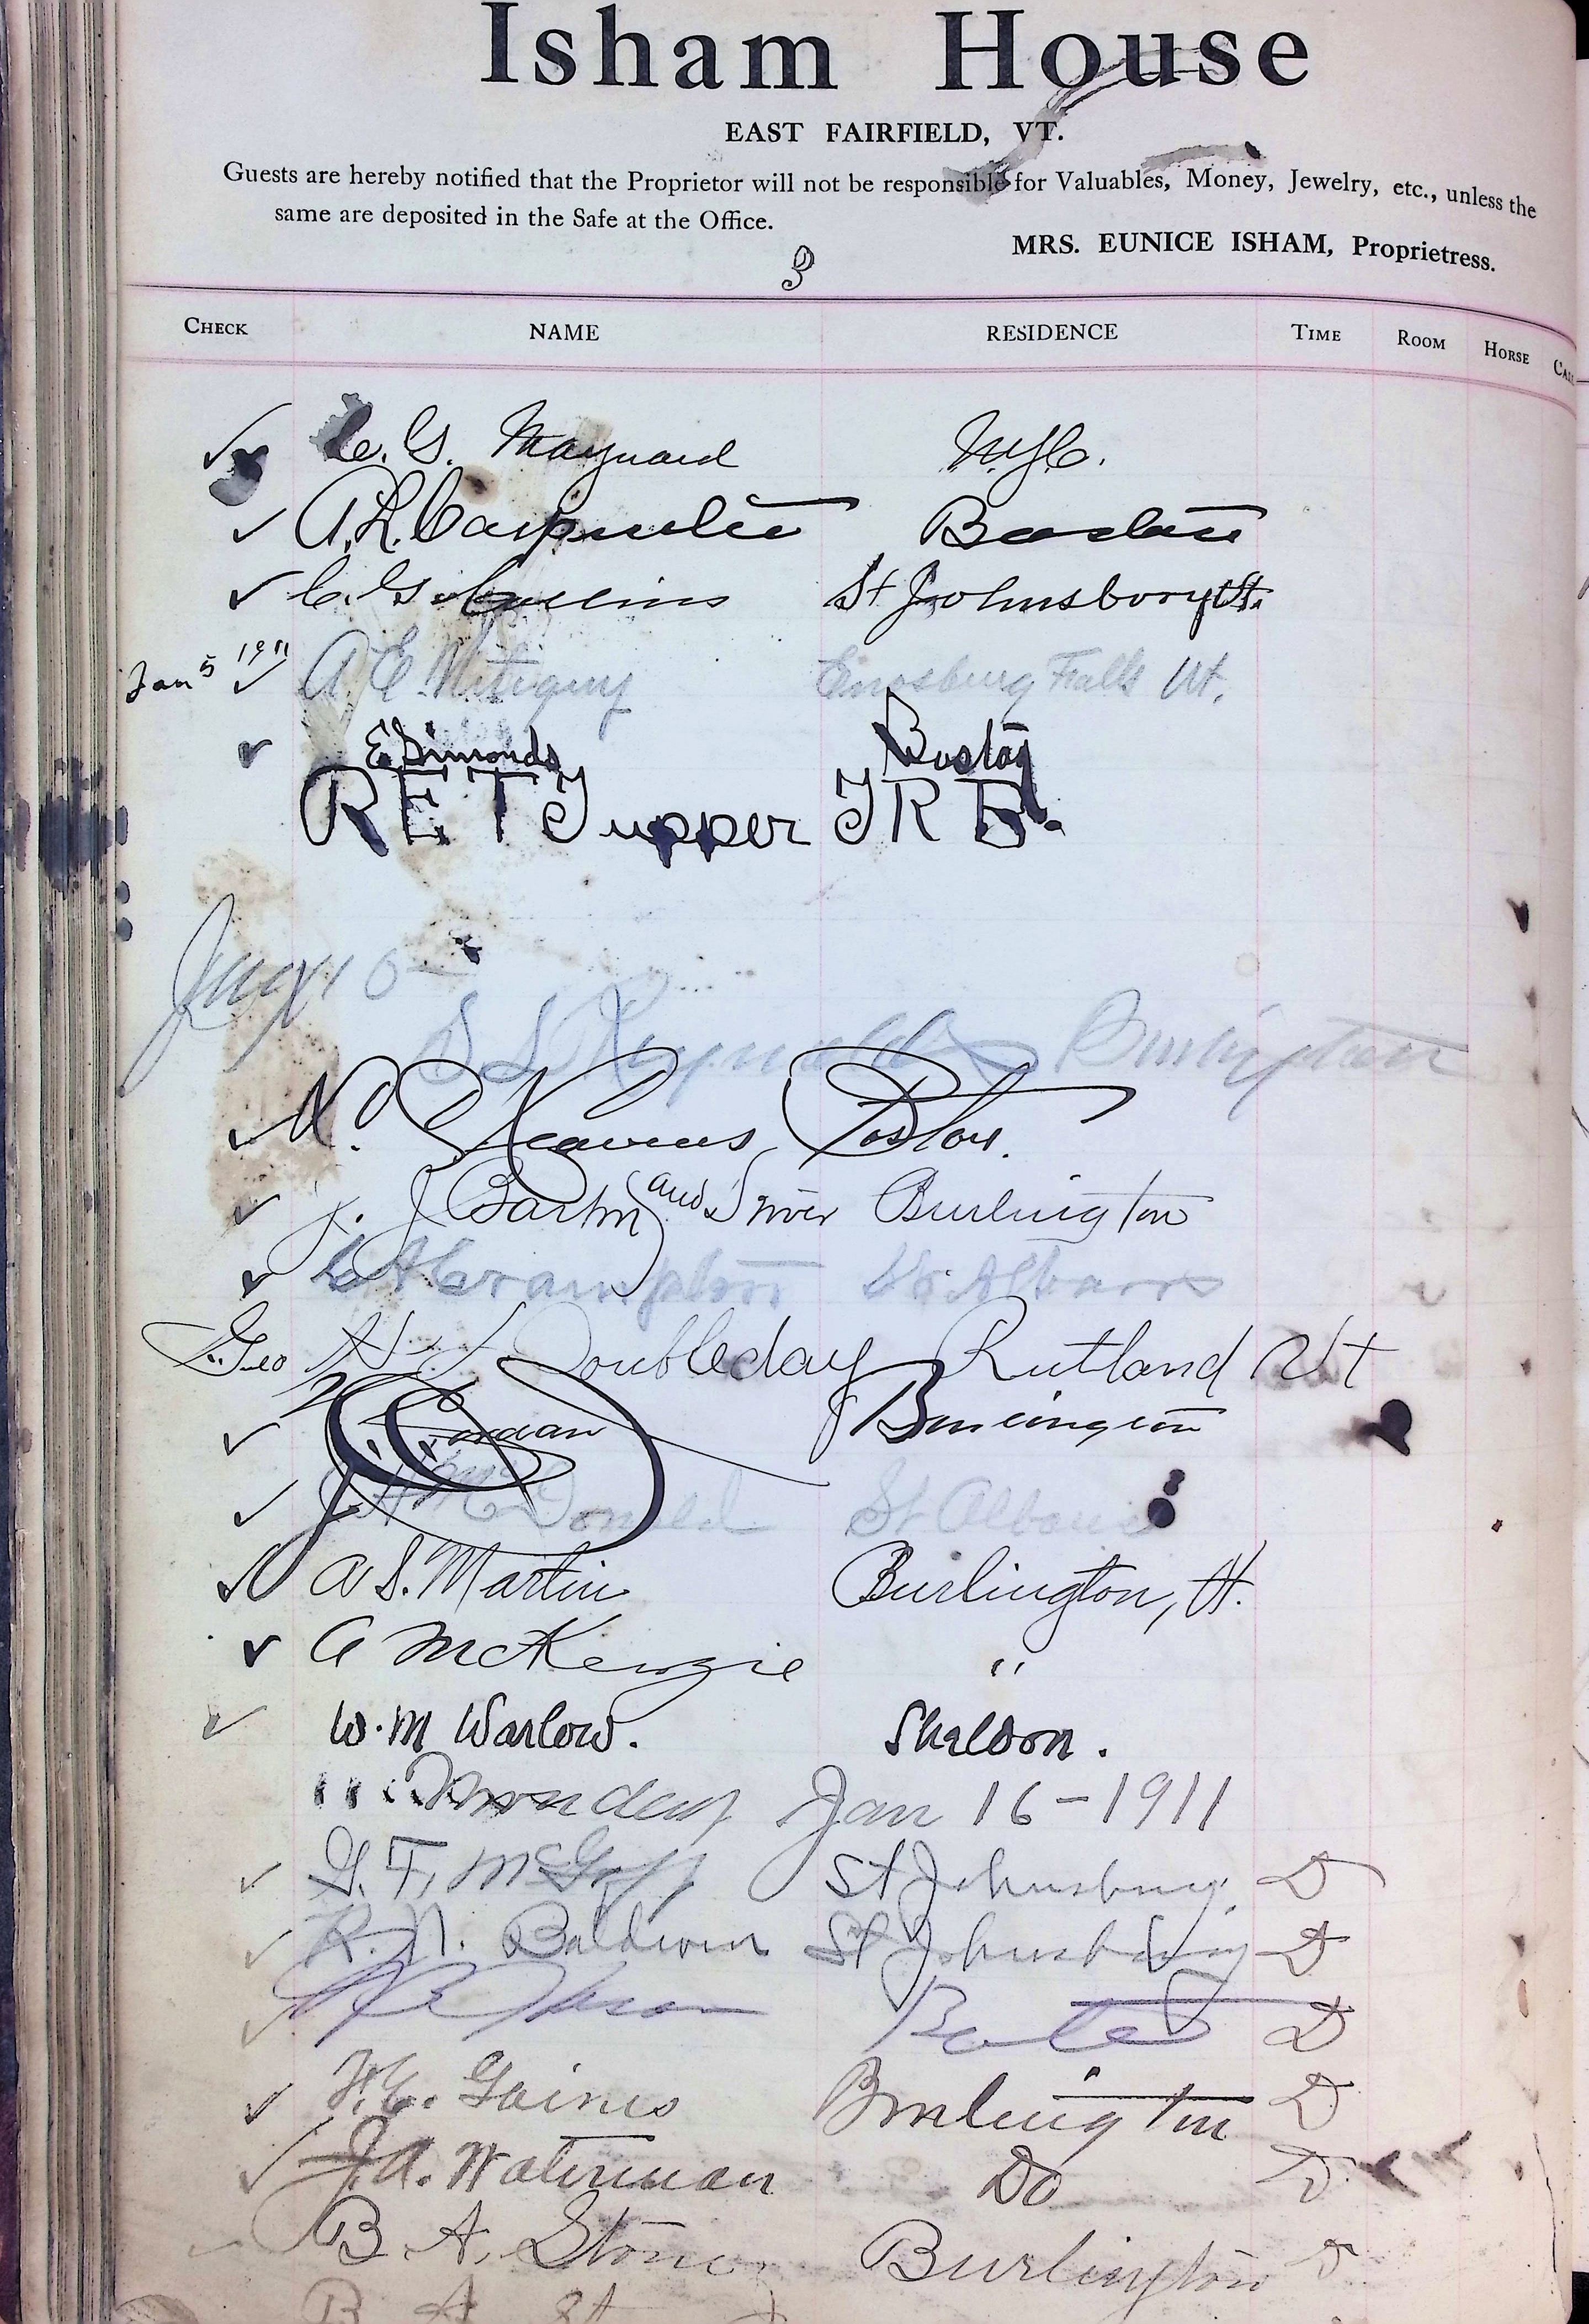 Isham House
EAST FAIRFIELD, VT.
Guests are hereby notified that the Proprietor will not be responsible for Valuables, Money, Jewelry, etc., unless the
same are deposited in the Safe at the Office.
MRS. EUNICE ISHAM, Proprietress.
CHECK NAME RESIDENCE TIME ROOM HORSE
C. G. Maynard N.Y.C.
A. R. Carpenter Boston
C. G. Collins St Johnsbury Vt.
Jan 5 1911 A E Mitiguy Enosburg Falls Vt.
E Simonds Boston
R E T Tupper J R B.
S L Reynolds Burlington
N. Boston.
J. J. Bartin and Driver Burlington
C A Crampton St. Albans
Geo Doubleday Rutland Vt
Burlington
McDonald St Albans
A S. Martin Burlington, Vt.
A McKenzie "
W. M Warlow. Sheldon.
Jan 16 - 1911
G. F. McGoff St Johnsbury D
R. N. Baldwin St Johnsbury D
D
H. C. Gaines Burlington D
J. A. Waterman Do D
B. A. Stone Burlington D
B A St